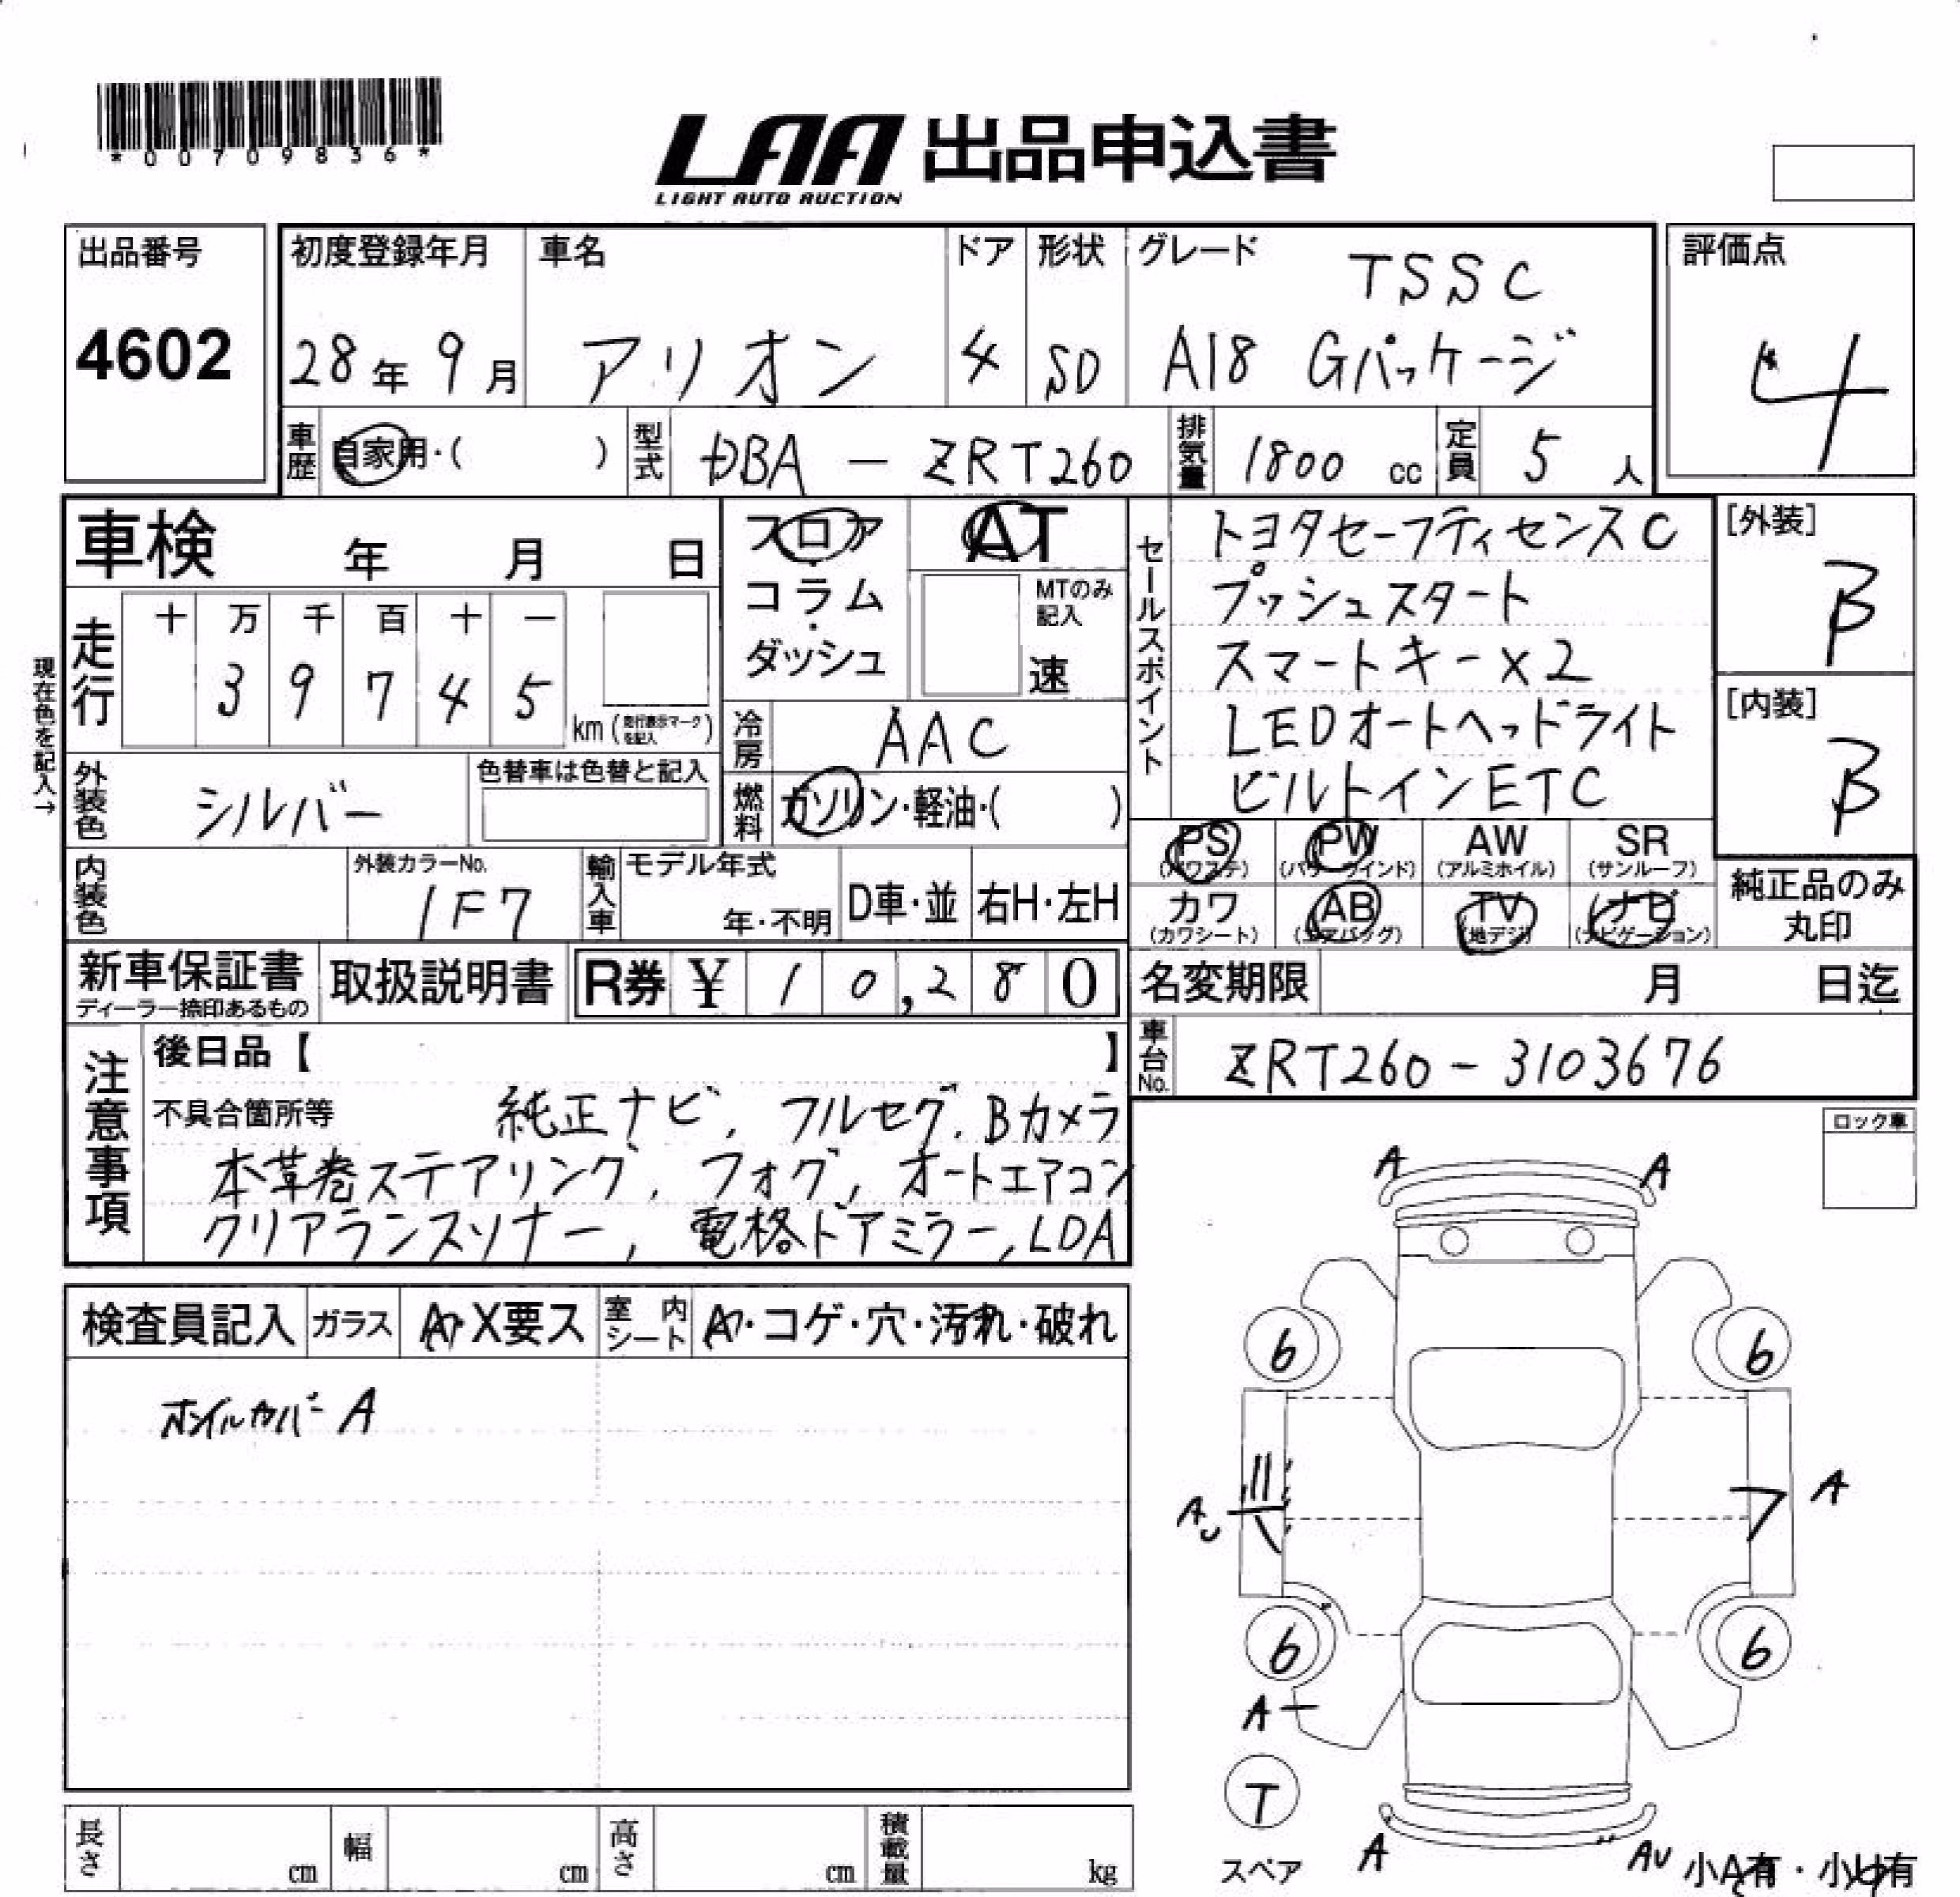 *00709836*
LAA 出品申込書
LIGHT AUTO AUCTION
出品番号
4602
初度登録年月
28年 9月
車名
アリオン
ドア
4
形状
SD
グレード
TSSC
A18 Gパッケージ
評価点
4
車歴 自家用・( )
型式 DBA - ZRT260
排気量 1800 cc
定員 5 人
車検 年 月 日
走行
十 万 千 百 十 一
3 9 7 4 5
km (走行表示マークを記入)
現在色を記入→
外装色 シルバー
色替車は色替と記入
フロア・コラム・ダッシュ
AT
MTのみ記入
速
冷房 AAC
燃料 ガソリン・軽油・( )
セールスポイント
トヨタセーフティセンスC
プッシュスタート
スマートキー×2
LEDオートヘッドライト
ビルトインETC
[外装]
B
[内装]
B
PS (パワステ)
PW (パワーウインド)
AW (アルミホイル)
SR (サンルーフ)
カワ (カワシート)
AB (エアバッグ)
TV (地デジ)
ナビ (ナビゲーション)
純正品のみ丸印
内装色
外装カラーNo.
1F7
輸入車
モデル年式
年・不明
D車・並
右H・左H
新車保証書
ディーラー捺印あるもの
取扱説明書
R券 ¥ 10,280
名変期限 月 日迄
車台No. ZRT260-3103676
注意事項
後日品【 】
不具合箇所等 純正ナビ, フルセグ, Bカメラ
本革巻ステアリング, フォグ, オートエアコン
クリアランスソナー,電格ドアミラー, LDA
ロック車
検査員記入
ガラス
X要ス
室内シート
・コゲ・穴・汚れ・破れ
ホイルカバー A
A
A
6
6
A
A
6
6
A
T
スペア
A
AU
長さ cm
幅 cm
高さ cm
積載量 kg